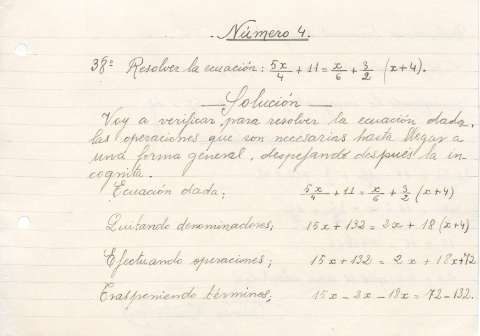 Número 4.
38º Resolver la ecuación: 5x/4 + 11 = x/6 + 3/2 (x+4).
Solución
Voy a verificar para resolver la ecuación dada,
las operaciones que son necesarias hasta llegar a
una forma general, despejando después la in-
cognita.
Ecuación dada: 5x/4 + 11 = x/6 + 3/2 (x+4)
Quitando denominadores; 15x + 132 = 2x + 18 (x+4)
Efectuando operaciones; 15x + 132 = 2x + 18x+72
Trasponiendo términos; 15x - 2x - 18x = 72 - 132.